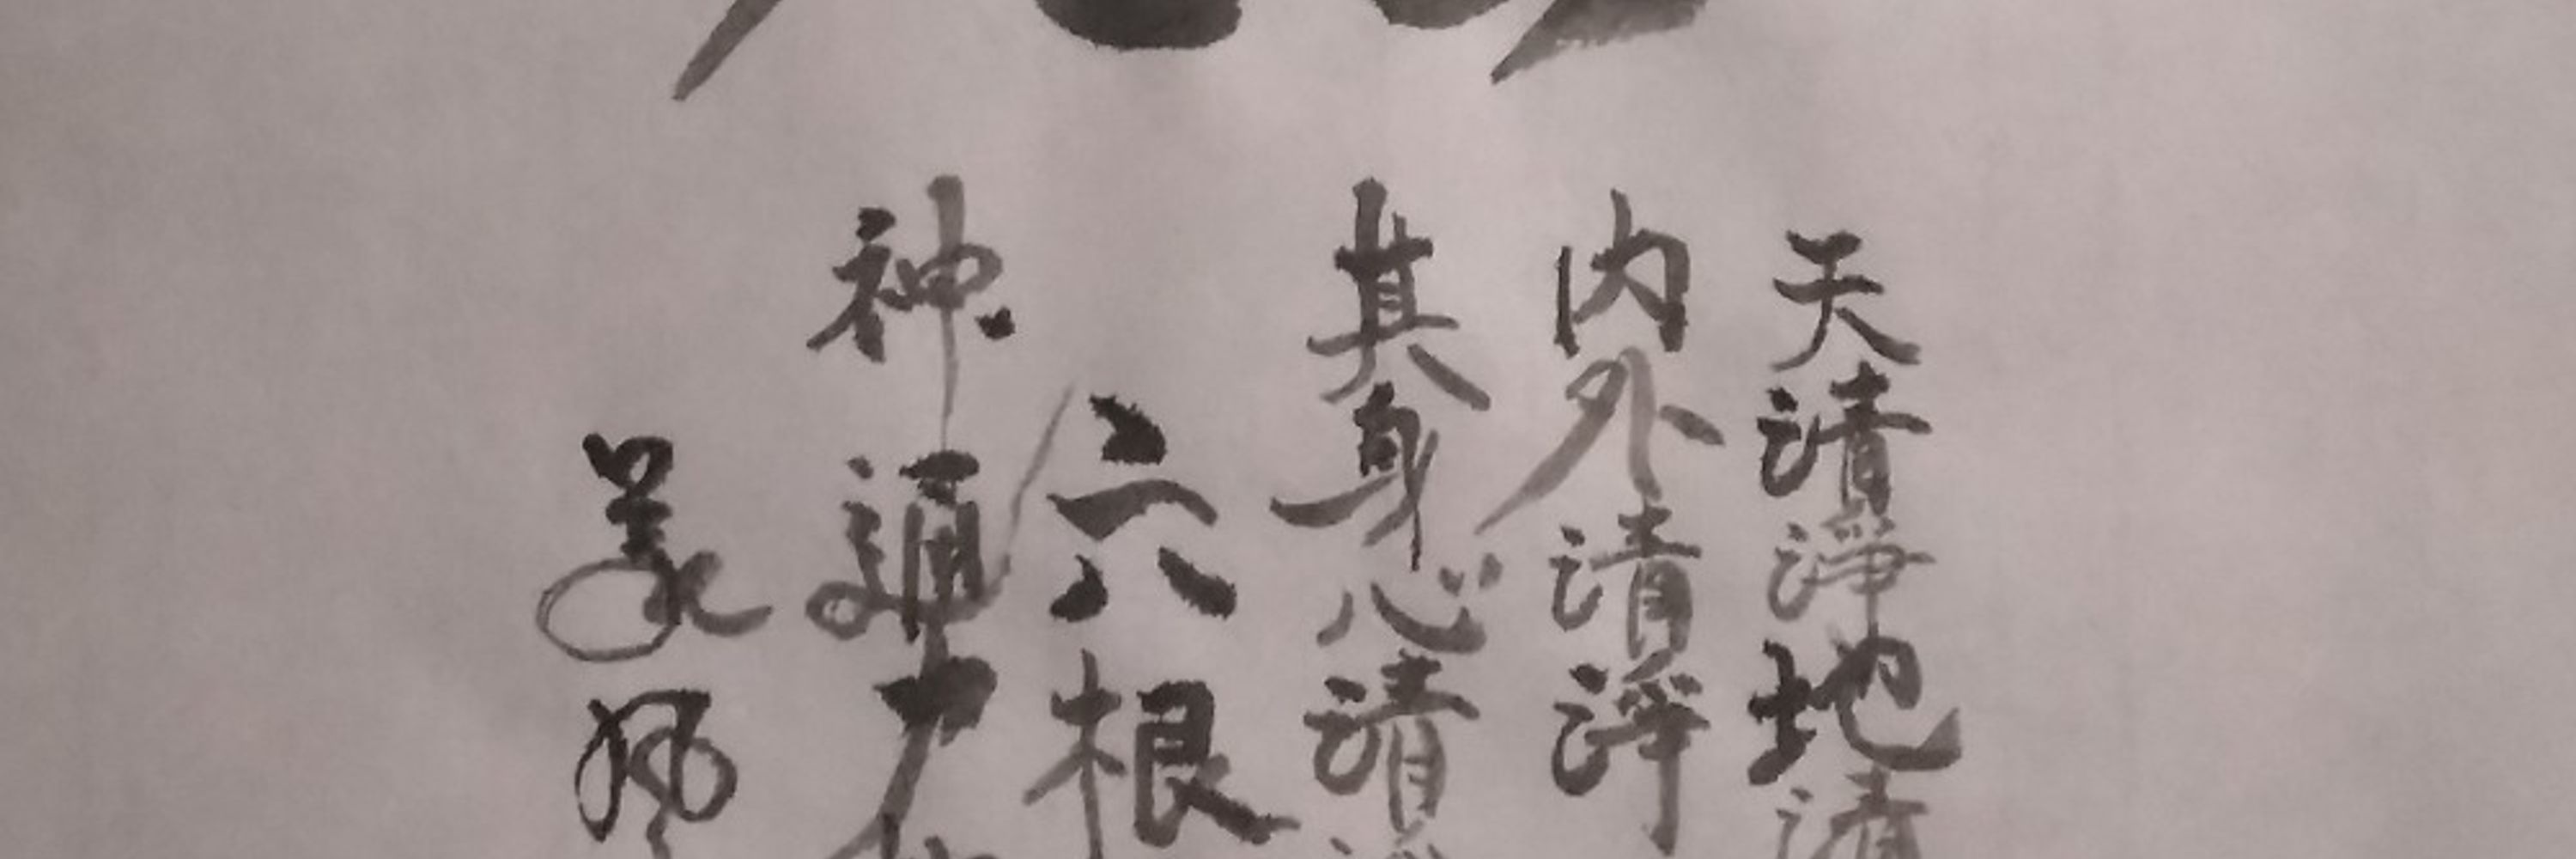 天清淨地清
内外清淨
其身心清
六根
神通力
美風